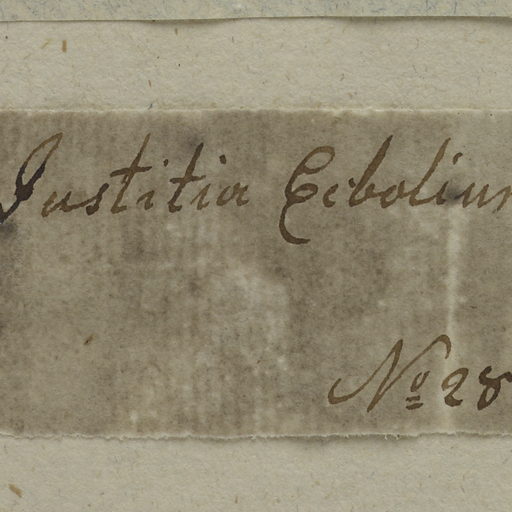 Justitia Ecbolium
No 28